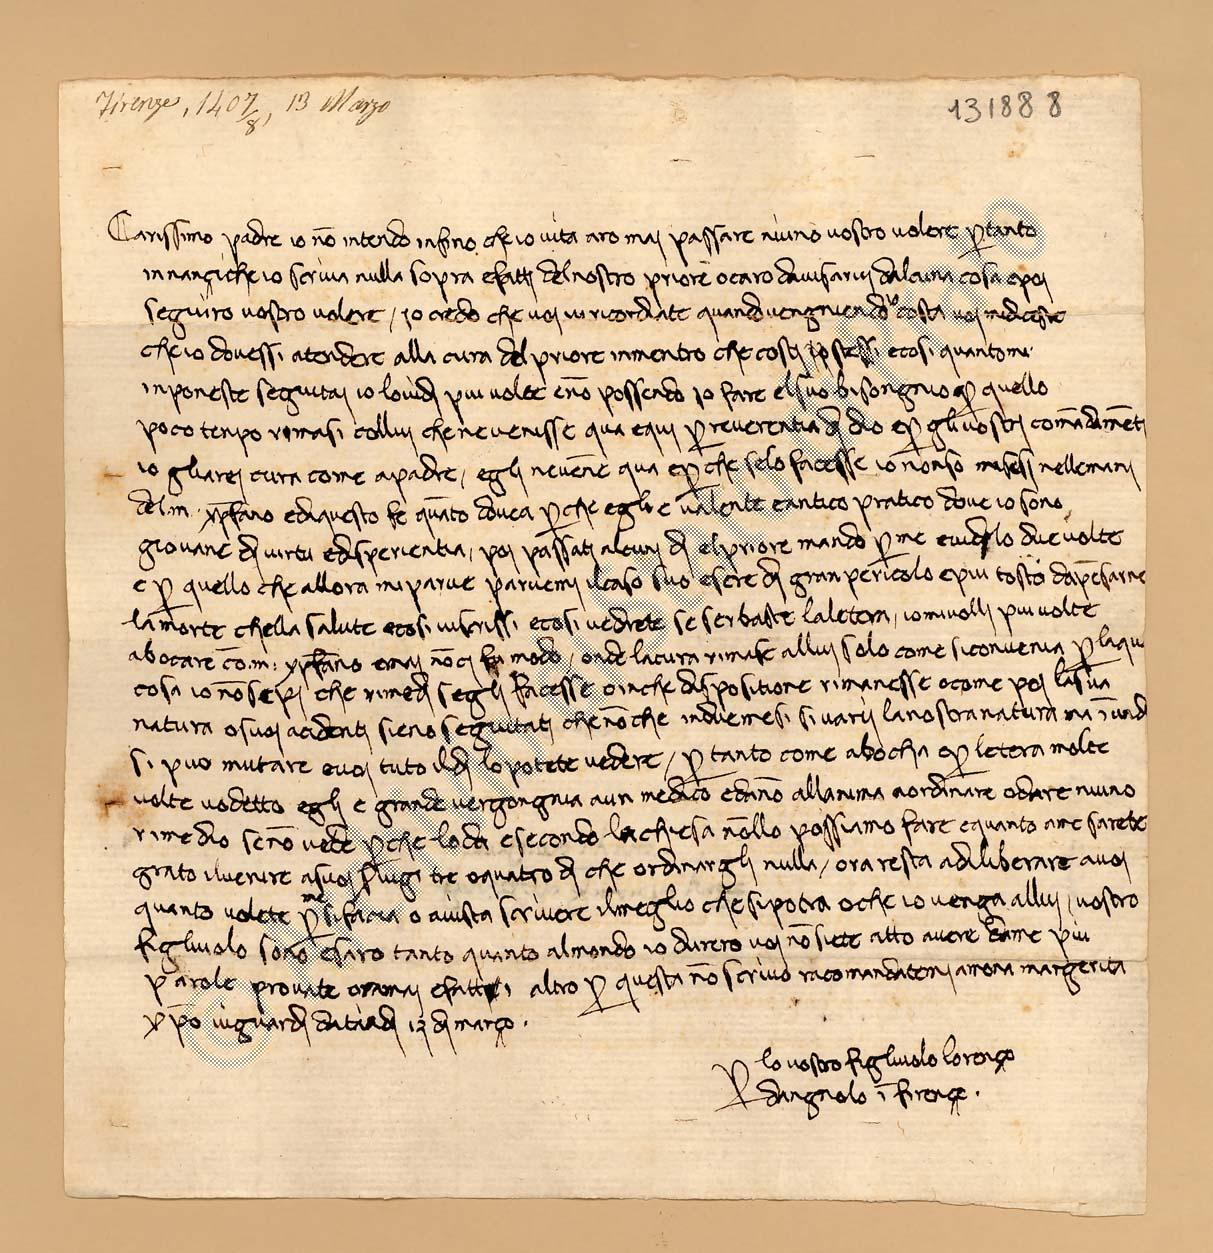 Firenze, 1407/8, 13 Marzo
131888
Carissimo padre io nō intendo infino che io vita aro mai passare niuno vostro volere p tanto
innançi che io scriva nulla sopra efatti del nostro priore o caro davisarvi dalcuna cosa epoi
seguiro vostro volere / io credo che voi vi ricordiate quando costa voi mi diceste
che io dovessi atendere alla cura del priore inmentro che costi io stessi ecosi quantomi
inponeste seguitai io lovidi piu volte enō possendo io fare elsuo bisongnio p quello
poco tempo rimasi collui che nevenisse qua equi p reverentia di dio ep gli vostri comādamēti
io gliarei cura come apadre / egli nevenē qua ep che selo facesse io nonso misesi nellemani
del m. xp̄fano ediquesto fe quāto dovea p che egli e valente eantico pratico dove io sono
giovane di virtu edisperientia / poi passati alcuni di elpriore mando p me evidilo due volte
e p quello che allora mi parve parvemi ilcaso suo esere di gran pericolo epiu tosto dapēsarne
lamorte chella salute ecosi viscrissi ecosi vedrete se serbaste laletera / io mivolli piu volte
abocare cō m. xp̄fano emai nōci fu modo / onde lacura rimase allui solo come siconvenia p laqu
cosa io nōsepi che rimedi segli facesse oinche dispositione rimanesse ocome poi lasua
natura osuoi acidenti sieno seguitati chenōche indue mesi si varii lanostra natura ma ī un di
si puo mutare evoi tuto ildi lo potete vedere / p tanto come abocha ep letera molte
volte vodetto egli e grande vergongnia aun medico edāno allanima aordinare odare niuno
rimedio senō vede p che loda esecondo lachiesa nōllo possiamo fare equanto ame sarete
grato ilvenire asuoi servigi tre oquatro di che ordinargli nulla / ora resta adiliberare avoi
quanto volete p me sifacia o avista scrivere ilmeglio che sipotra oche io venga allui / vostro
figliuolo sono esaro tanto quanto almondo io durero voi nō siete atto avere dame piu
parole provate oramai efatti altro p questa nō scrivo racomandatemi amona margerita
xp̄o viguardi data adi 13 di março .
p lo vostro figliuolo lorenço
dangnolo ī firençe .